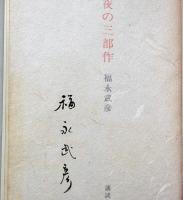 夜の三部作
福永武彦
福永武彦
講談